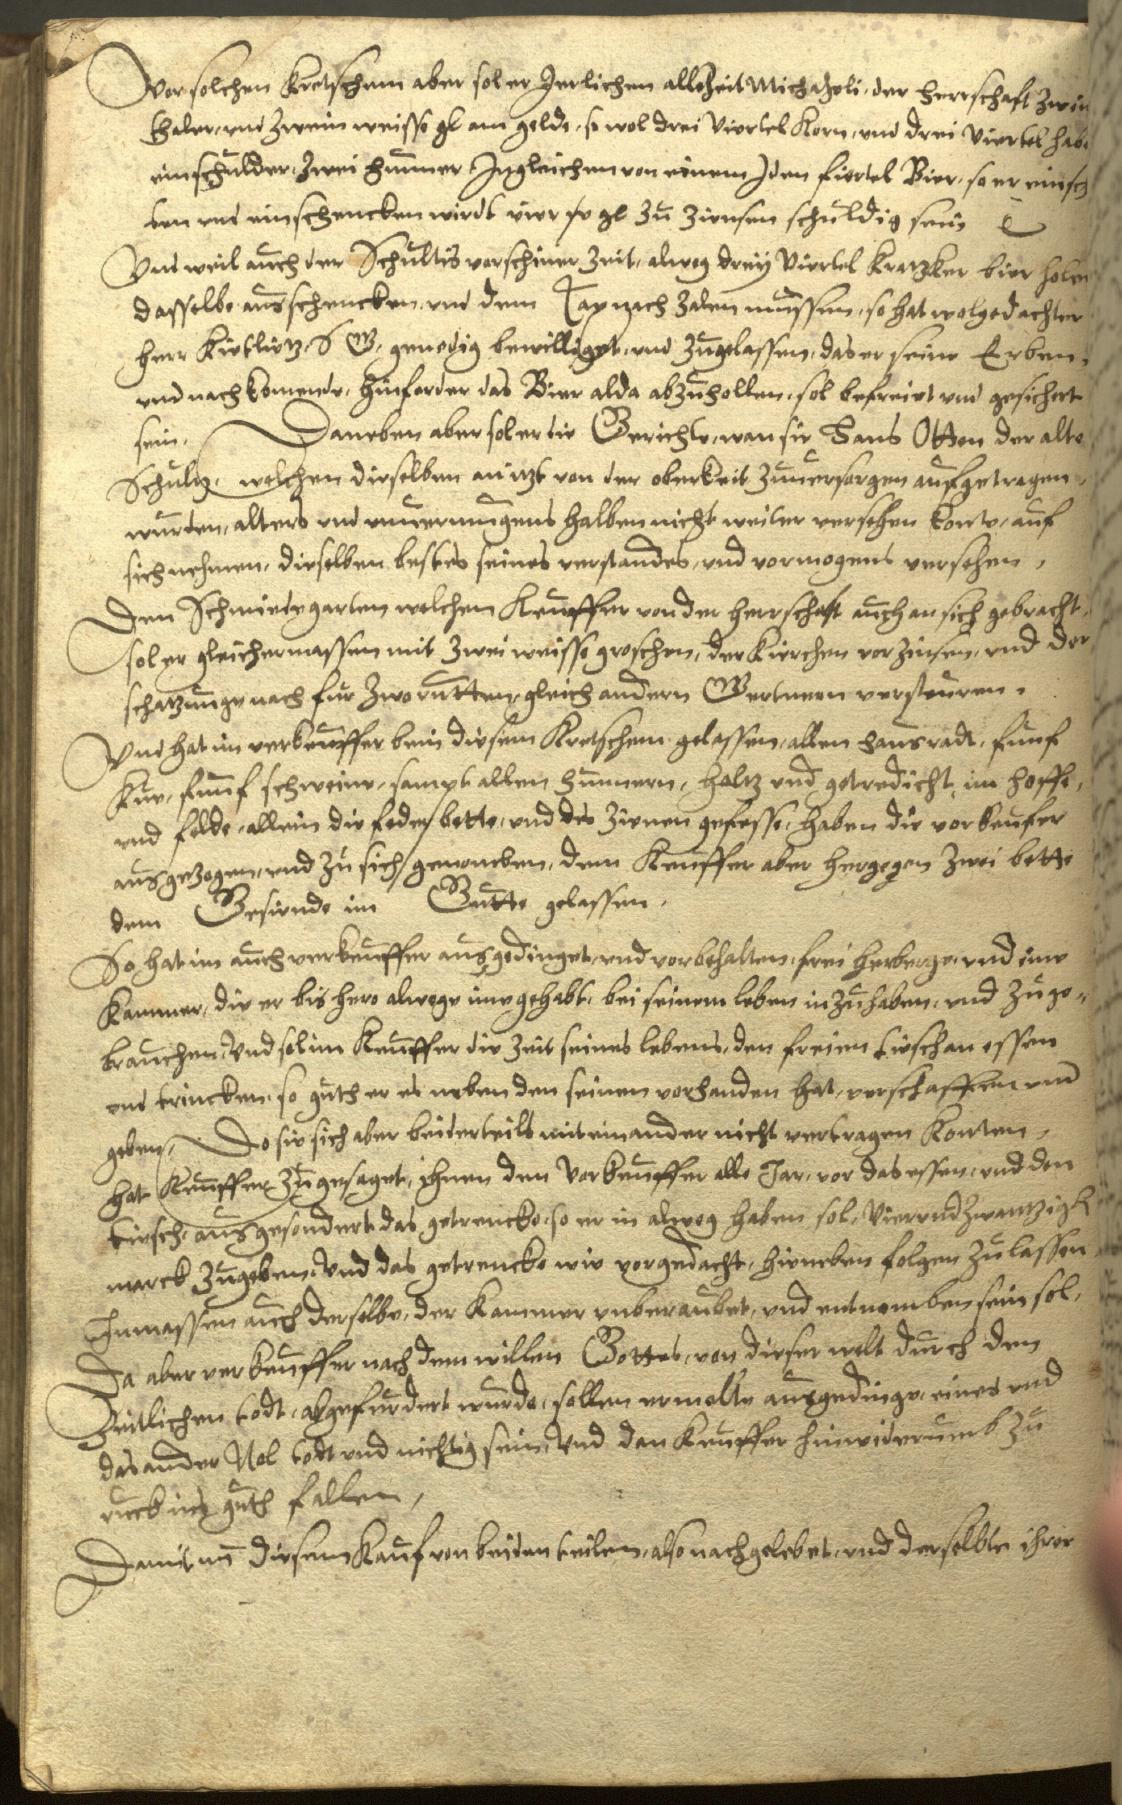 Vor solchen Kretscham aber sol er Jerlichen alle Zeit Michaheli, der Herrschaft Zwein
thaler, vnd Zwein weisse gl am gelde, so wol drei Viertel Korn, vnd drei Viertel hab
ein schulder, Zwei hunner Ingleichen von einem Jden fiertel Bier, so er
ten vnd einschencken wirdt vier gl zu Zinsen schuldig sein
Vnd weil auch der Schultis vorschiner Zeit, alweg dreÿ Viertel Kratzker bier holen
dasselbe ausschencken, vnd dem Tax nach Zalen mussen, so hat wolgedachter
herr Kietlietz S G, genedig bewilliget, vnd Zugelassen, das er seine Erben,
vnd nachkomende, hinforder das Bier alda abzuhollen, sol befreiet vnd gesichert
sein, Daneben aber sol er die Gerichte, wan sie Hans Otten der alte
Schultz, welchen dieselben an itzt von der oberkeit Zuuersorgen aufgetragen,
wurden, alters vnd vnuermugens halben nicht weiter versehen konte, auf
sich nehmen, dieselben bestes seines verstandes, vnd vormogens versehen,
Den Schmiedegarten welchen Keuffer von der herrschaft auch an sich gebracht,
sol er gleichermassen mit Zwei weisse groschen, der Kirchen vorzinsen, vnd der
schatzunge nach fur Zwo rutten, gleich andern Gertnern versteuren.
Vnd hat im verkeuffer bein diesem Kretschem gelassen, allen hausradt, funf
Kue, funf schweine, sampt allen hunnern, holtz vnd getredicht, im hoffe,
vnd felde, allein die feder bette, vnd des Zienen gefesse, haben die vorkeufer
ausgezogen, vnd Zu sich genomben, dem Keuffer aber hergegen Zwei bette
dem Gesiende im Gutte gelassen,
So hat im auch verkeuffer ausgedinget, vnd vorbehalten, frei herberge, vnd eine
Kammer, die er bis hero alwege inne gehabt, bei seinem leben in Zuhaben, vnd Zu ge-
brauchen, Vnd sol im Keuffer die Zeit seines lebens, den freien tiesch an essen
vnd trincken, so guth er es neben den seinen vorhanden hat, verschaffen vnd
geben, Do sie sich aber beiderteils mit einander nicht vertragen Konten,
hat Keuffer Zugesaget, ihnen dem Vorkeuffer alle Jar, vor das essen, vnd den
tiesch, ausgesondert das getrencke, so er in alweg haben sol, Viervnd Zwantzigk
marck Zugeben, Vnd das getrencke wie vorgedacht, hieneben folgen Zu lassen
Inmassen auch derselbe, der Kammer vnberaubet, vnd entnomben sein sol,
Da aber verkeuffer nach dem willen Gottes, von dieser welt durch den
Zeitlichen todt, abgefurdert wurde, sollen ermelte ausgedinge, eines vnd
das ander Mol todt vnd nichtig sein, Vnd den Keuffer hinwiderumb Zu
ruck ins guth fallen,
Damit nu diesem Kauf von beiden teilen, also nachgelebet, vnd derselbte ihrer